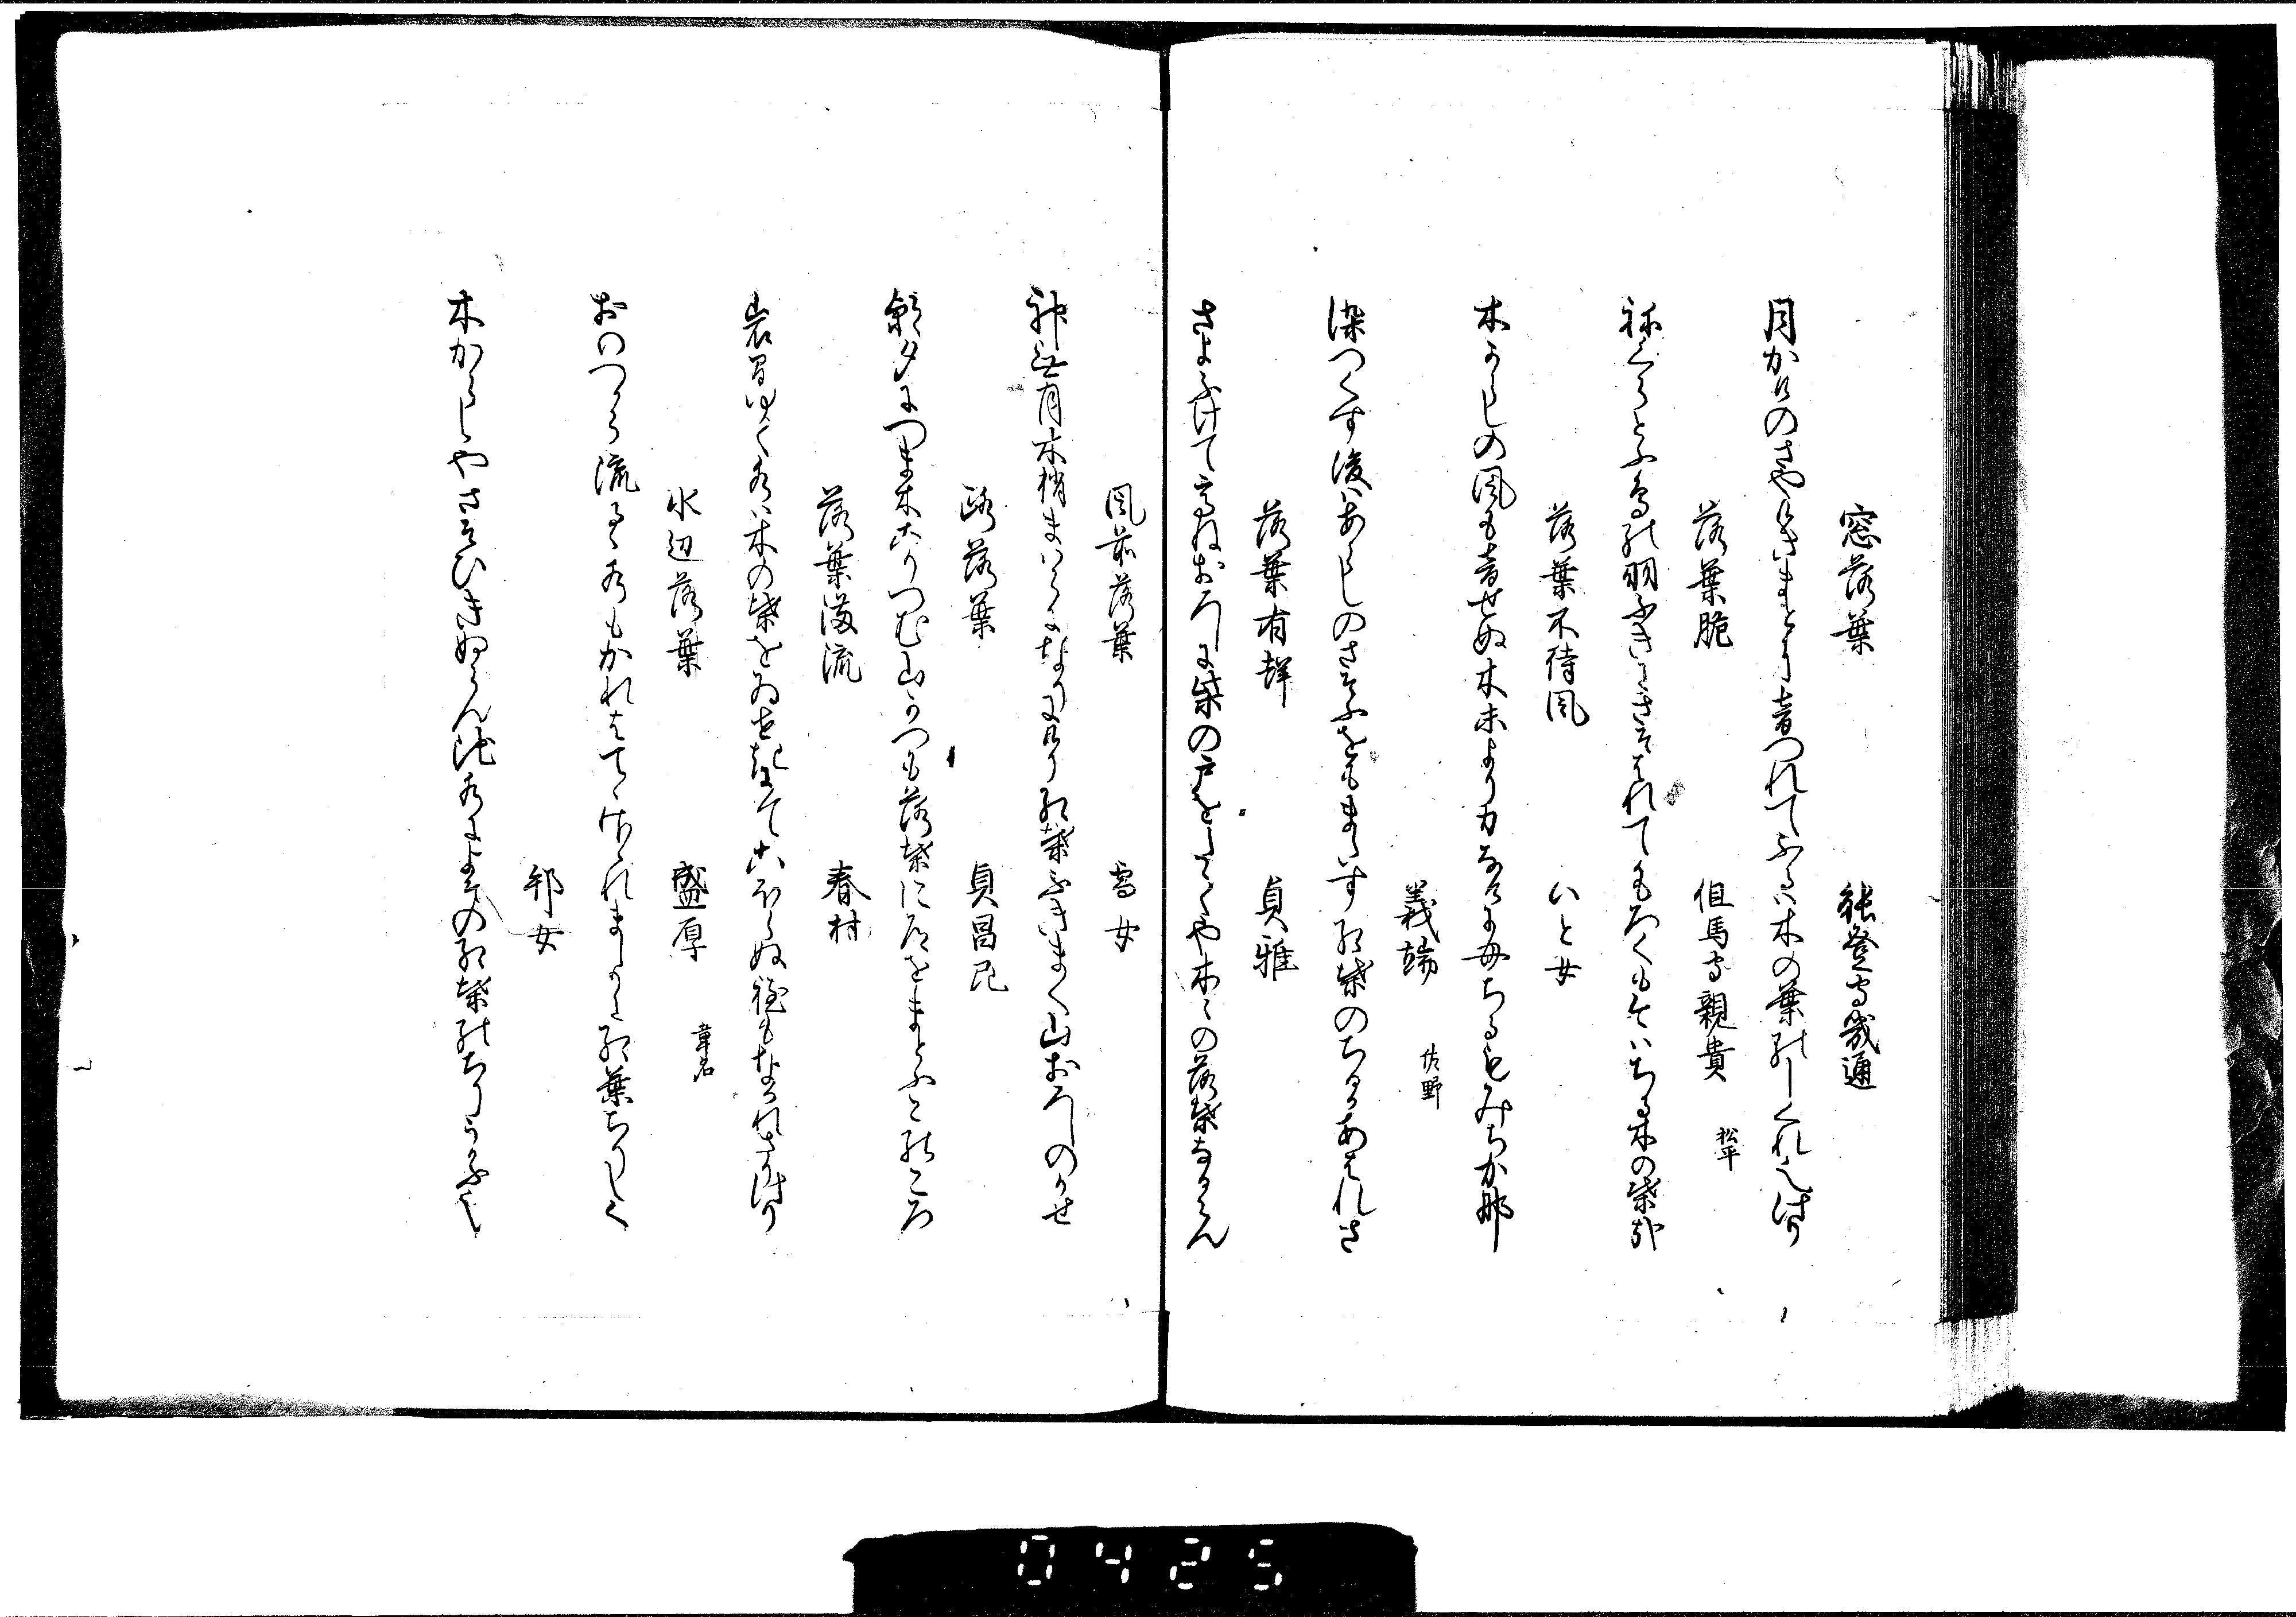 窓落葉 能登守幾通
月かけのさやけきまとに音つれてふるは木の葉のしくれ也けり
落葉脆 但馬守親貴 松平
ねくらとふ鳥の羽ふきにさそはれてもろくもけさはちる木の葉哉
落葉不待風 いと女
木からしの風も音せぬ木末より力なけにもちるもみちか那
義端 佐野
染つくす後はあらしのさそふをもまたす紅葉のちるあはれさ
落葉有声 貞雅
さよふけて高ねおろしに柴の戸をたゝくや木々の落葉なるらん
風前落葉 雪女
神無月木梢まはらになりにけり紅葉ふきまく山おろしのかせ
路落葉 貞昌
朝夕につま木こりつむ山かつも落葉に道をまとふこのころ
落葉満流 春村
岩間ゆく水は木の葉をゐせきにてこほらぬ程もなかれさりけり
水辺落葉 盛厚
おのつから流るゝ水もかれはてゝうつれましりて紅葉ちりしく
邦女
木からしやさそひきぬらん池水によその紅葉のちりうかふ也
0425